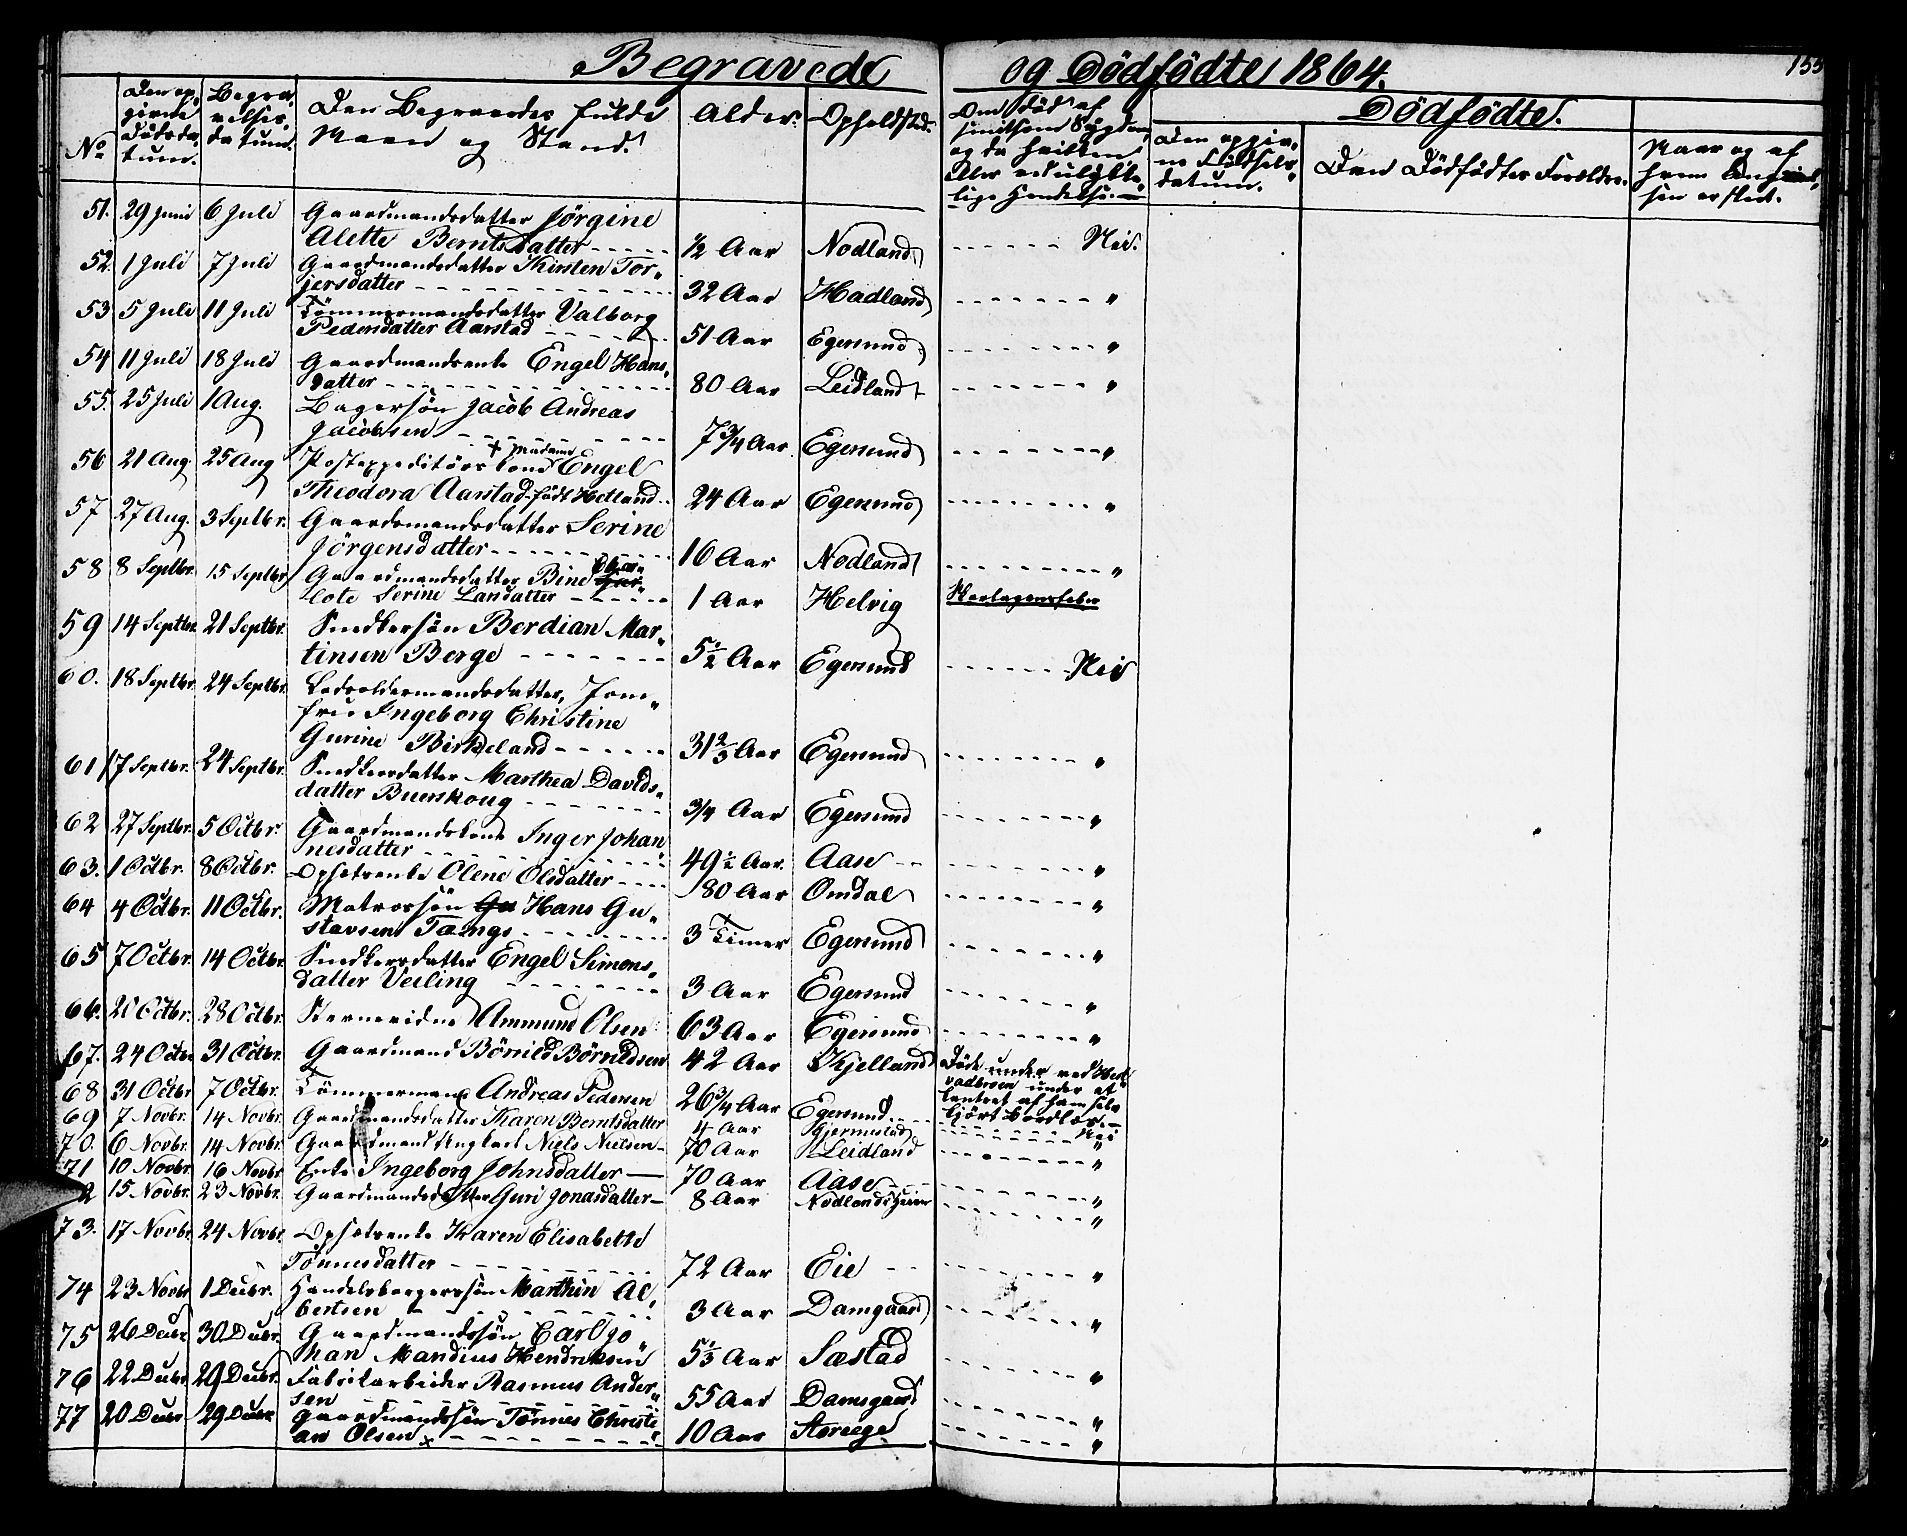 Begravede og Dödfödte 1864.
155
No
Den op-
givne
Dödsda-
tum.
Begra-
velses-
datum.
Den Begravedes fulde
Navn og Stand.
Alder.
Opholdssted.
Om Död af
smitsom Sygdom,
og da hvilken.
Eller ved ulykke-
lige Hendelser.
Dödfödte.
Den opgiv-
ne Födsels-
datum.
Den Dödfödtes Foreldre.
Naar og af
hvem Anmel-
sen er skeet.
51. 29 Juni 6 Juli Gaardmandsdatter Jörgine
Alette Berntsdatter ½ Aar Nodland Nei.
52. 1 Juli 7 Juli Gaardmandsdatter Kirsten Tor-
jersdatter 32 Aar Hadland "
53 5 Juli 11 Juli Tömmermandsdatter Valborg
Pedersdatter Aarstad 51 Aar Egersund "
54 11 Juli 18 Juli Gaardmandsenke Engel Hans-
datter 80 Aar Leidland "
55. 25 Juli 1 Aug. Bagersön Jacob Andreas
Jacobsen 7¾ Aar Egersund "
56 21 Aug. 25 Aug + Madame
Postexpeditörskone Engel
Theodora Aarstad födt Hetland 24 Aar Egersund "
57 27 Aug. 3 Septbr. Gaardmandsdatter Serine
Jörgensdatter 16 Aar Nodland "
58 8 Septbr. 15 Septbr. Gaardmandsdatter Bine Char-
lote Serine Larsdatter 1 Aar Helvig Skarlagensfeber
59 14 Septbr. 21 Septbr. Snedkersön Berdian Mar-
tinsen Berge 5½ Aar Egersund Nei
60. 18 Septbr. 24 Septbr. Lodsoldermandsdatter, Jom-
fru Ingeborg Christine
Gurine Birkeland 31⅔ Aar Egersund "
61 17 Septbr. 24 Septbr. Snedkersdatter Marthea Davids-
datter Buerskoug ¾ Aar Egersund "
62 27 Septbr. 5 Octbr. Gaardmandskone Inger Johan-
nesdatter 49½ Aar. Aase "
63. 1 Octbr. 8 Octbr. Opsidderenke Olene Olsdatter 80 Aar Omdal "
64 4 Octbr. 11 Octbr. Matrossön Gu Hans Gu-
stavsen Tængs 3 Timer Egersund "
65 7 Octbr. 14 Octbr. Snedkersdatter Engel Simons-
datter Veiling 3 Aar Egersund "
66. 20 Octbr. 28 Octbr. Ammund Olsen 63 Aar Egersund "
67. 24 Octbr 31 Octbr. Gaardmand Börnild Börnildsen 42 Aar Kjelland Döde under
68 31 Octbr 7 Octbr. Tömmermand Andreas Pedersen 26¾ Aar Egersund
69 7 Novbr. 14 Novbr. Gaardmandsdatter Karen Berntsdatter 4 Aar Gjermestad Nei
70. 6 Novbr. 14 Novbr. Gaardmand Ungkarl Niels Nielsen 70 Aar Leidland "
71 10 Novbr. 16 Novbr. Enke Ingeborg Johnsdatter 70 Aar Aase "
2 15 Novbr. 23 Novbr. Gaardmandsdatter Guri Jonasdatter 8 Aar Nodlandsheien "
73. 17 Novbr. 24 Novbr. Opsidderenke Karen Elisabethe
Tönnesdatter 72 Aar Eie "
74 23 Novbr 1 Decbr. Handelsborgersön Marthin Al-
bertsen 3 Aar Damsgaard "
75 26 Decbr 30 Decbr. Gaardmandssön Carl Jo-
han Mandius Hendriksen 5⅓ Aar Sæstad "
76 22 Decbr 29 Decbr. Fabrikarbeider Rasmus Ander-
sen 55 Aar Damsgaard "
77 20 Decbr 29 Decbr Gaardmandssön Tönnes Christi-
an Olsen x 10 Aar Aareege "